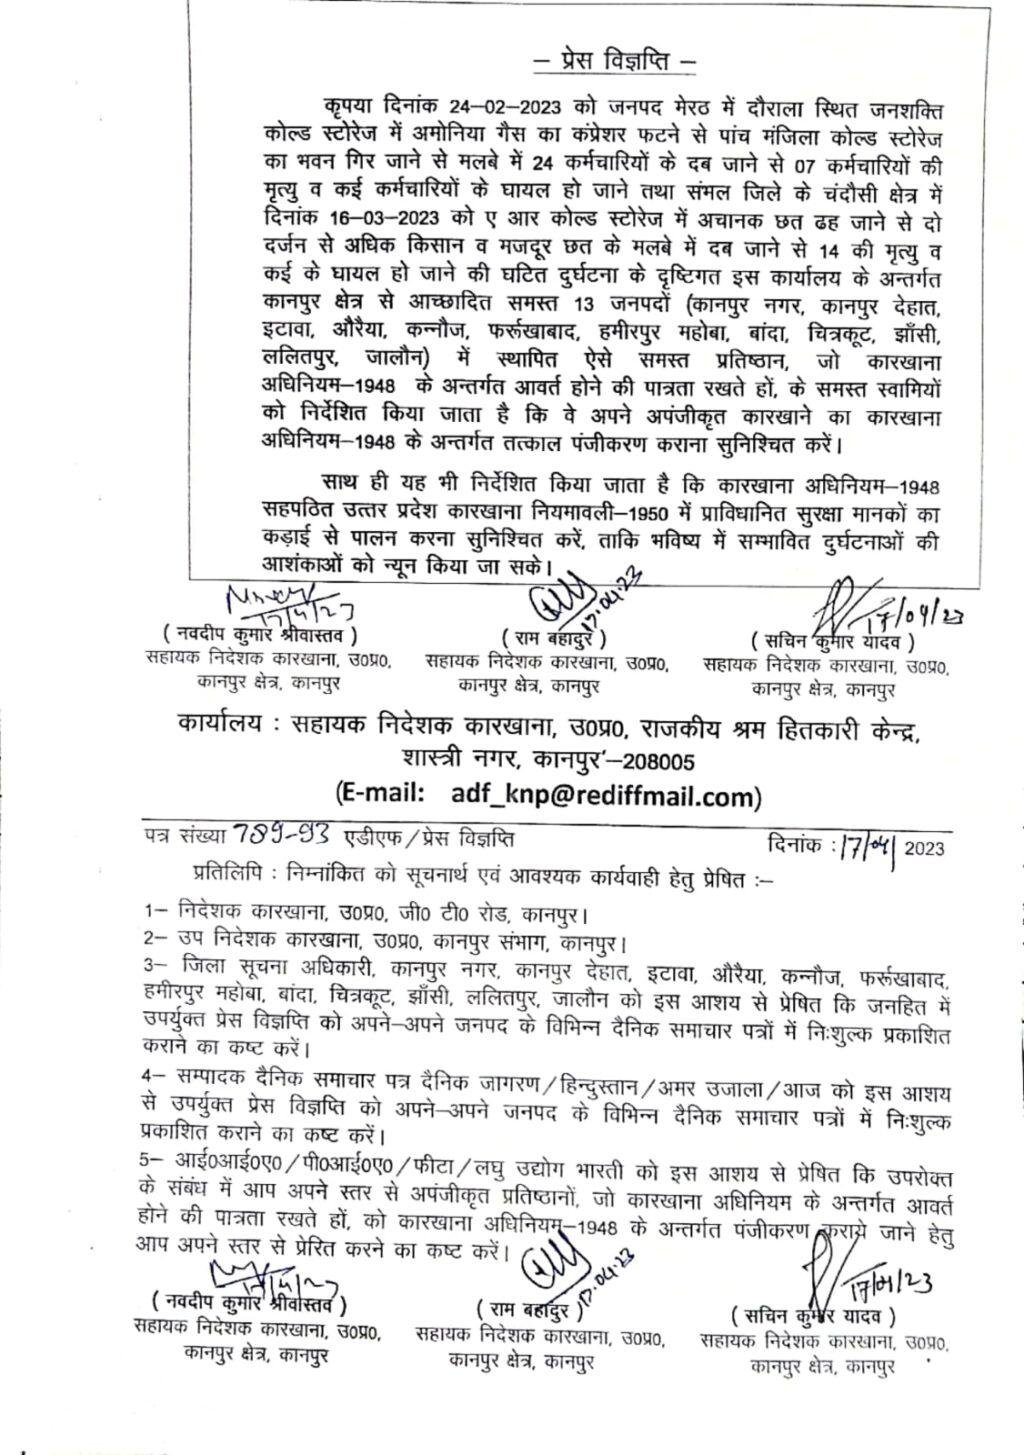 – प्रेस विज्ञप्ति –
कृपया दिनांक 24–02–2023 को जनपद मेरठ में दौराला स्थित जनशक्ति
कोल्ड स्टोरेज में अमोनिया गैस का कंप्रेशर फटने से पांच मंजिला कोल्ड स्टोरेज
का भवन गिर जाने से मलबे में 24 कर्मचारियों के दब जाने से 07 कर्मचारियों की
मृत्यु व कई कर्मचारियों के घायल हो जाने तथा संमल जिले के चंदौसी क्षेत्र में
दिनांक 16–03–2023 को ए आर कोल्ड स्टोरेज में अचानक छत ढह जाने से दो
दर्जन से अधिक किसान व मजदूर छत के मलबे में दब जाने से 14 की मृत्यु व
कई के घायल हो जाने की घटित दुर्घटना के दृष्टिगत इस कार्यालय के अन्तर्गत
कानपुर क्षेत्र से आच्छादित समस्त 13 जनपदों (कानपुर नगर, कानपुर देहात,
इटावा, औरैया, कन्नौज, फर्रूखाबाद, हमीरपुर महोबा, बांदा, चित्रकूट, झाँसी,
ललितपुर, जालौन) में स्थापित ऐसे समस्त प्रतिष्ठान, जो कारखाना
अधिनियम–1948 के अन्तर्गत आवर्त होने की पात्रता रखते हों, के समस्त स्वामियों
को निर्देशित किया जाता है कि वे अपने अपंजीकृत कारखाने का कारखाना
अधिनियम–1948 के अन्तर्गत तत्काल पंजीकरण कराना सुनिश्चित करें।
साथ ही यह भी निर्देशित किया जाता है कि कारखाना अधिनियम–1948
सहपठित उत्तर प्रदेश कारखाना नियमावली–1950 में प्राविधानित सुरक्षा मानकों का
कड़ाई से पालन करना सुनिश्चित करें, ताकि भविष्य में सम्भावित दुर्घटनाओं की
आशंकाओं को न्यून किया जा सके।
17/4/23 17.04.23 17/04/23
( नवदीप कुमार श्रीवास्तव ) ( राम बहादुर ) ( सचिन कुमार यादव )
सहायक निदेशक कारखाना, उ0प्र0, सहायक निदेशक कारखाना, उ0प्र0, सहायक निदेशक कारखाना, उ0प्र0,
कानपुर क्षेत्र, कानपुर कानपुर क्षेत्र, कानपुर कानपुर क्षेत्र, कानपुर
कार्यालय : सहायक निदेशक कारखाना, उ0प्र0, राजकीय श्रम हितकारी केन्द्र,
शास्त्री नगर, कानपुर–208005
(E-mail: adf_knp@rediffmail.com)
पत्र संख्या 789-93 एडीएफ/प्रेस विज्ञप्ति दिनांक : 17/04/ 2023
प्रतिलिपि : निम्नांकित को सूचनार्थ एवं आवश्यक कार्यवाही हेतु प्रेषित :–
1– निदेशक कारखाना, उ0प्र0, जी0 टी0 रोड, कानपुर।
2– उप निदेशक कारखाना, उ0प्र0, कानपुर संभाग, कानपुर।
3– जिला सूचना अधिकारी, कानपुर नगर, कानपुर देहात, इटावा, औरैया, कन्नौज, फर्रूखाबाद,
हमीरपुर महोबा, बांदा, चित्रकूट, झाँसी, ललितपुर, जालौन को इस आशय से प्रेषित कि जनहित में
उपर्युक्त प्रेस विज्ञप्ति को अपने–अपने जनपद के विभिन्न दैनिक समाचार पत्रों में निःशुल्क प्रकाशित
कराने का कष्ट करें।
4– सम्पादक दैनिक समाचार पत्र दैनिक जागरण/हिन्दुस्तान/अमर उजाला/आज को इस आशय
से उपर्युक्त प्रेस विज्ञप्ति को अपने–अपने जनपद के विभिन्न दैनिक समाचार पत्रों में निःशुल्क
प्रकाशित कराने का कष्ट करें।
5– आई0आई0ए0/पी0आई0ए0/फीटा/लघु उद्योग भारती को इस आशय से प्रेषित कि उपरोक्त
के संबंध में आप अपने स्तर से अपंजीकृत प्रतिष्ठानों, जो कारखाना अधिनियम के अन्तर्गत आवर्त
होने की पात्रता रखते हों, को कारखाना अधिनियम–1948 के अन्तर्गत पंजीकरण कराये जाने हेतु
आप अपने स्तर से प्रेरित करने का कष्ट करें।
17/4/23 17.04.23 17/04/23
( नवदीप कुमार श्रीवास्तव ) ( राम बहादुर ) ( सचिन कुमार यादव )
सहायक निदेशक कारखाना, उ0प्र0, सहायक निदेशक कारखाना, उ0प्र0, सहायक निदेशक कारखाना, उ0प्र0,
कानपुर क्षेत्र, कानपुर कानपुर क्षेत्र, कानपुर कानपुर क्षेत्र, कानपुर